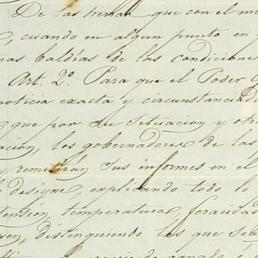 De las tierras que con el m
, cuando en algun punto en
nas baldias de las condiciones
Art. 2º. Para que el Poder
noticia exacta y circunstanciada
que por su situacion y otr
acion, los gobernadores de las
y remitiran sus informes en el
designe, explicando todo lo
tension, temperatura, feracidad
uen, distinguiendo los que se